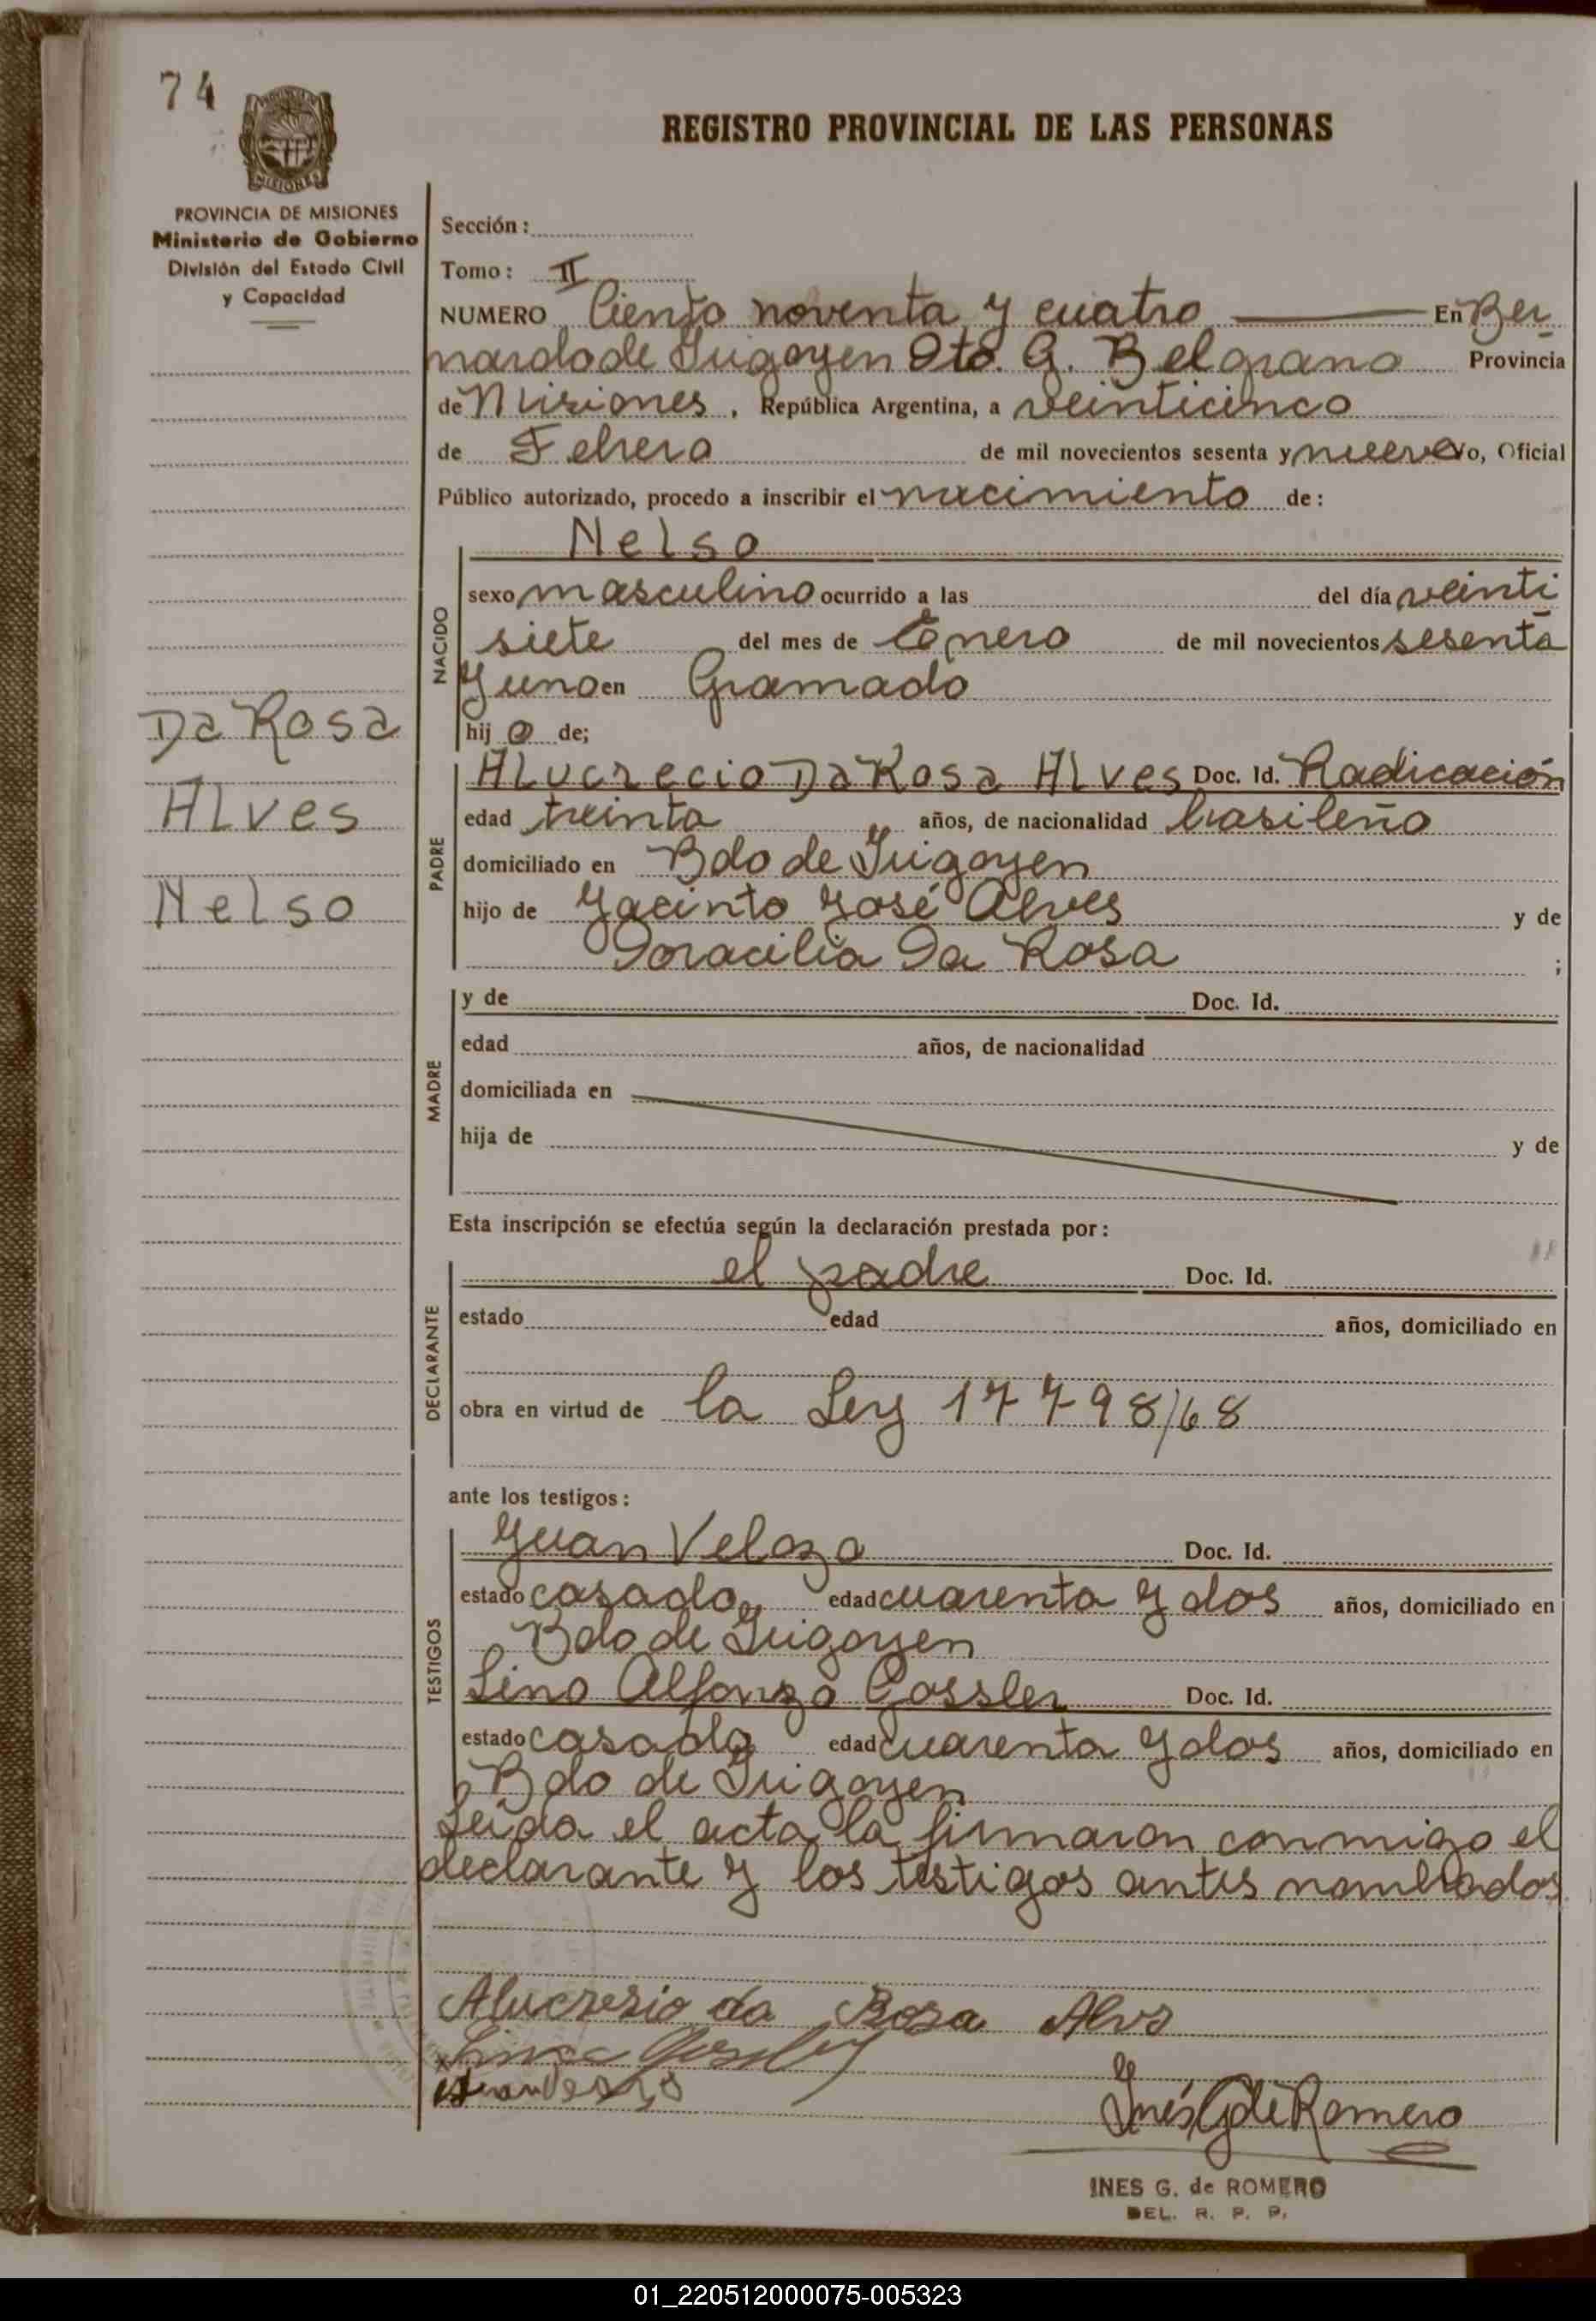 74
MISIONES
REGISTRO PROVINCIAL DE LAS PERSONAS
PROVINCIA DE MISIONES
Ministerio de Gobierno
División del Estado Civil
y Capacidad
Sección:
Tomo: II
NUMERO Ciento noventa y cuatro En Ber
nardo de Irigoyen Dto. G. Belgrano Provincia
de Misiones, República Argentina, a veinticinco
de Febrero de mil novecientos sesenta y nueve Yo, Oficial
Público autorizado, procedo a inscribir el nacimiento de:
Nelso
NACIDO
sexo masculino ocurrido a las del día veinti
siete del mes de Enero de mil novecientos sesenta
y uno en Gramado
hij o de;
Da Rosa
Alves
Nelso
PADRE
Alucrecio Da Rosa Alves Doc. Id. Radicación
edad treinta años, de nacionalidad brasileño
domiciliado en Bdo de Irigoyen
hijo de Jacinto José Alves y de
Doracilia Da Rosa ;
MADRE
y de Doc. Id.
edad años, de nacionalidad
domiciliada en
hija de y de
Esta inscripción se efectúa según la declaración prestada por:
DECLARANTE
el padre Doc. Id.
estado edad años, domiciliado en
obra en virtud de la Ley 17798/68
ante los testigos:
TESTIGOS
Juan Velozo Doc. Id.
estado casado edad cuarenta y dos años, domiciliado en
Bdo de Irigoyen
Lino Alfonzo Gossler Doc. Id.
estado casado edad cuarenta y dos años, domiciliado en
Bdo de Irigoyen
Leida el acta la firmaron conmigo el
declarante y los testigos antes nombrados
Alucresio da Rosa Alvs
Inés G de Romero
INES G. de ROMERO
DEL. R. P. P.
01_220512000075-005323